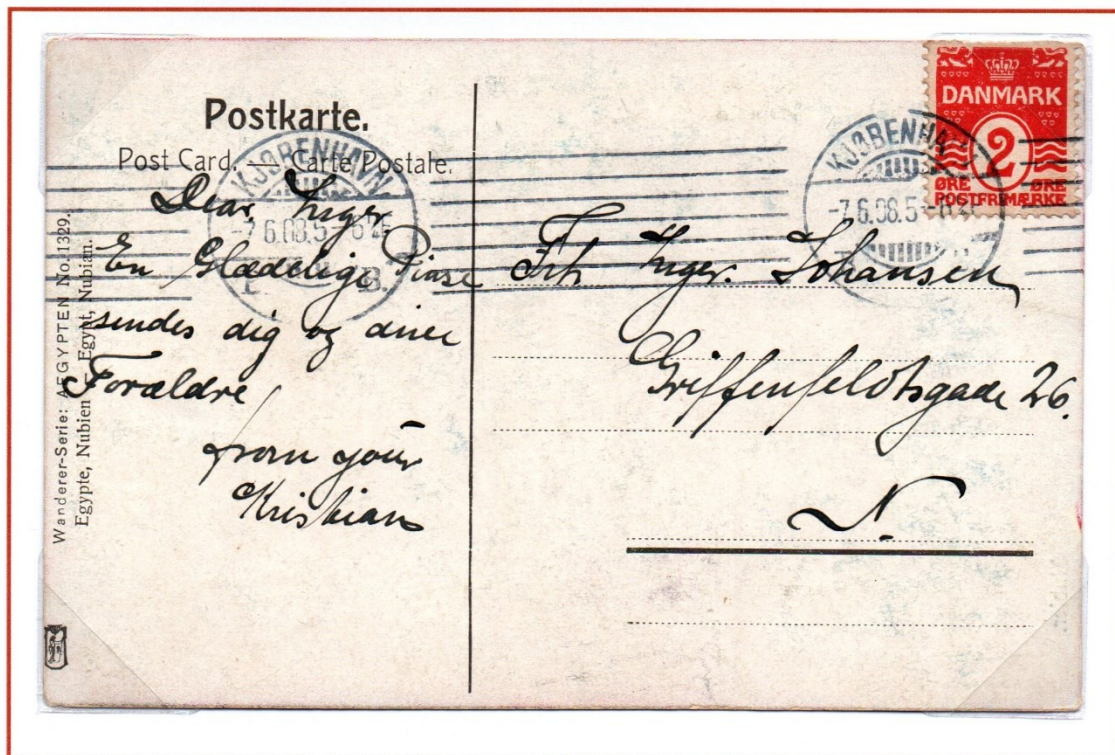 Postkarte.
Post Card. — Carte Postale.
Dear, Inger.
En Glædelige Pinse
sendes dig og dine
Forældre
from your
Kristian
Wanderer-Serie: AEGYPTEN No. 1329.
Egypte, Nubien Egypt, Nubian.
KJØBENHAVN
-7.6.08.5-6
B.
DANMARK
2
ØRE ØRE
POSTFRIMÆRKE
KJØBENHAVN
-7.6.08.5-6
Frk Inger. Johansen
Griffenfeldtsgade 26.
N.